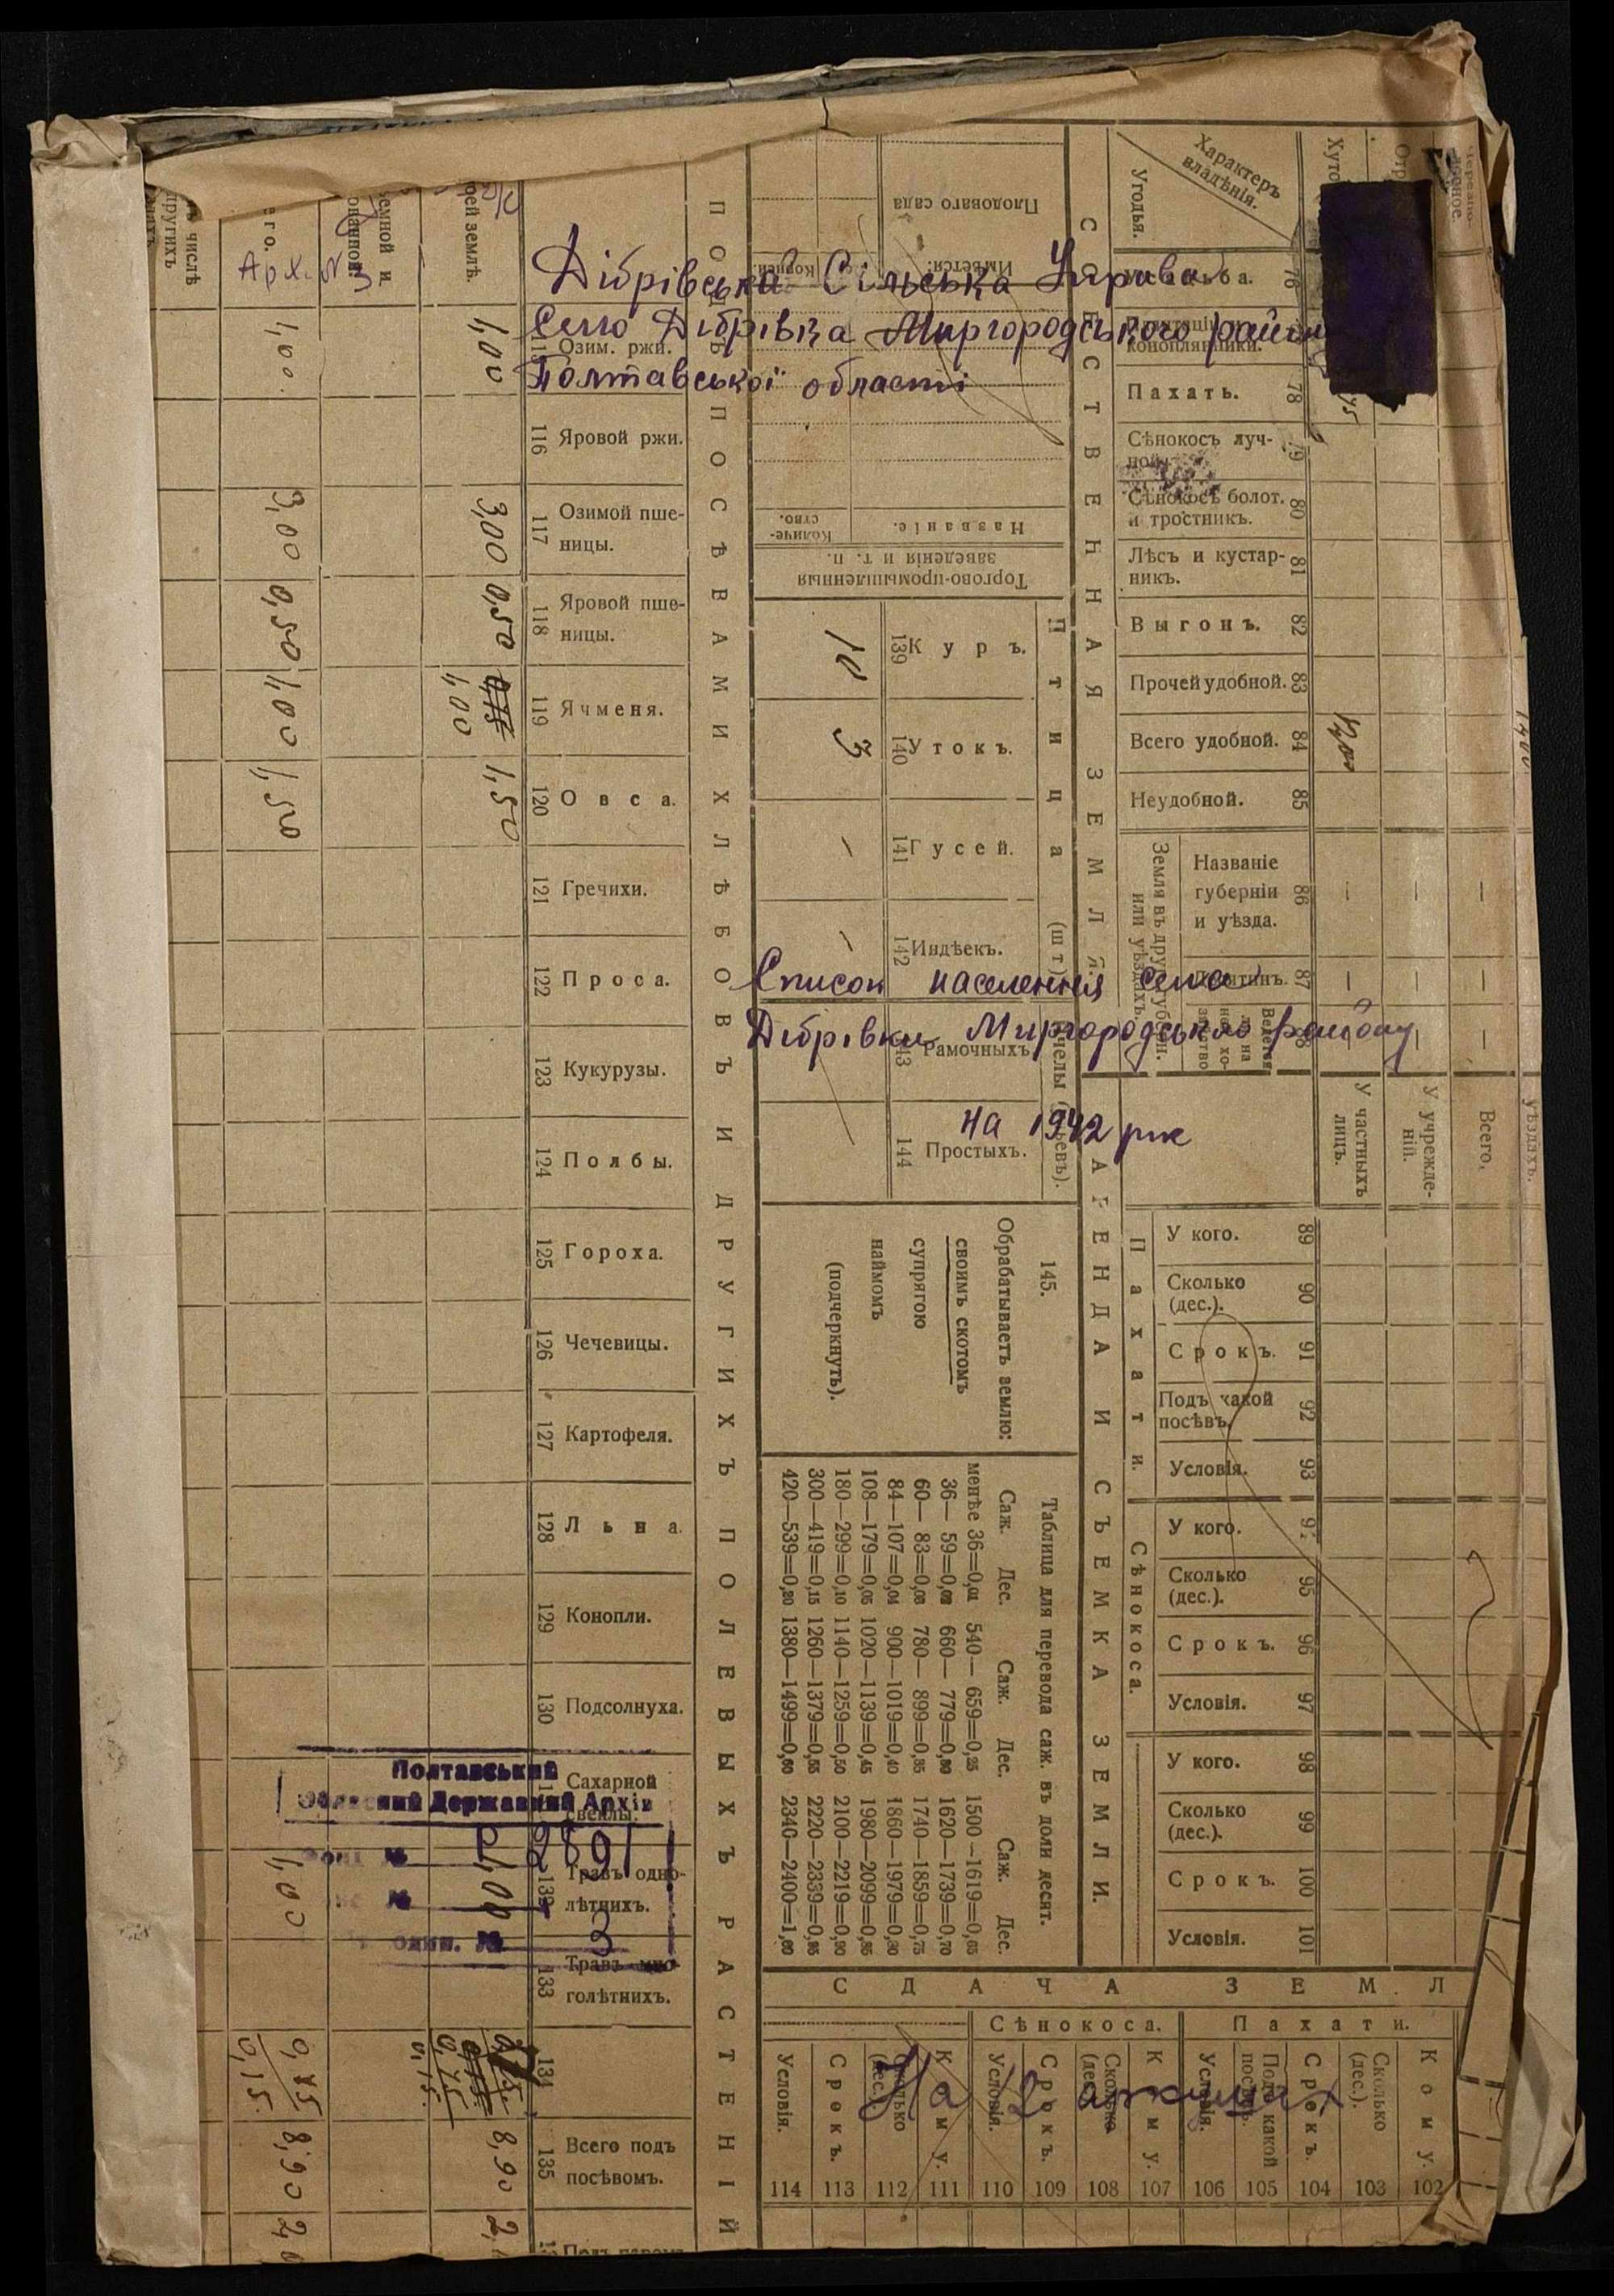 Арх. № 3
Дібрівська Сільська Управа
Село Дібрівка Миргородського району
Полтавської області
Список населення села
Дібрівки Миргородського району
на 1942 рік
На 12 аркушах
Полтавський
Обласний Державний Архів
Фонд № Р 2891
№
один. № 3
Характеръ владѣнія.
Угодья.
СОБСТВЕННАЯ ЗЕМЛЯ.
78 Пахать.
45
79 Сѣнокосъ луч-
ной.
80 Сѣнокосъ болот.
и тростникъ.
81 Лѣсъ и кустар-
никъ.
82 Выгонъ.
83 Прочей удобной.
84 Всего удобной.
85 Неудобной.
86 Названіе
губерніи
и уѣзда.
87
У частныхъ
лицъ.
У учрежде-
ній.
Всего.
уѣздахъ.
АРЕНДА И СЪЕМКА ЗЕМЛИ.
Пахати.
89 У кого.
90 Сколько
(дес.).
91 Срокъ.
92 Подъ какой
посѣвъ.
93 Условія.
Сѣнокоса.
У кого.
95 Сколько
(дес.).
96 Срокъ.
97 Условія.
98 У кого.
99 Сколько
(дес.).
100 Срокъ.
101 Условія.
СДАЧА ЗЕМЛ
Сѣнокоса.
Пахати.
Условія.
Срокъ.
Сколько
(дес.).
Кому.
Условія.
Срокъ.
Сколько
(дес.).
Кому.
Условія.
Подъ какой
посѣвъ.
Срокъ.
Сколько
(дес.).
Кому.
114 113 112 111 110 109 108 107 106 105 104 103 102
Плодоваго сада
Имѣется:
Названіе.
Количе-
ство.
Торгово-промышленныя
заведенія и т. п.
Птица (шт.)
139 Куръ.
10
140 Утокъ.
3
141 Гусей.
142 Индѣекъ.
Рамочныхъ.
144 Простыхъ.
145.
Обрабатываетъ землю:
своимъ скотомъ
супрягою
наймомъ
(подчеркнуть).
Таблица для перевода саж. въ доли десят.
Саж. Дес. Саж. Дес. Саж. Дес.
менѣе 36=0,01 540— 659=0,25 1500—1619=0,65
36— 59=0,02 660— 779=0,30 1620—1739=0,70
60— 83=0,03 780— 899=0,35 1740—1859=0,75
84—107=0,04 900—1019=0,40 1860—1979=0,80
108—179=0,05 1020—1139=0,45 1980—2099=0,85
180—299=0,10 1140—1259=0,50 2100—2219=0,90
300—419=0,15 1260—1379=0,55 2220—2339=0,95
420—539=0,20 1380—1499=0,60 2340—2400=1,00
ПОДЪ ПОСѢВАМИ ХЛѢБОВЪ И ДРУГИХЪ ПОЛЕВЫХЪ РАСТЕНІЙ
Озим. ржи.
1,00
1,00
116 Яровой ржи.
117 Озимой пше-
ницы.
3,00
3,00
118 Яровой пше-
ницы.
0,50
0,50
119 Ячменя.
1,00
1,00
120 Овса.
1,50
1,50
121 Гречихи.
122 Проса.
123 Кукурузы.
124 Полбы.
125 Гороха.
126 Чечевицы.
127 Картофеля.
128 Льна.
129 Конопли.
130 Подсолнуха.
Сахарной
свеклы.
132 Травъ одно-
лѣтнихъ.
1,00
1,00
133 Травъ мно-
голѣтнихъ.
134
0,75
0,15
135 Всего подъ
посѣвомъ.
8,90
8,90